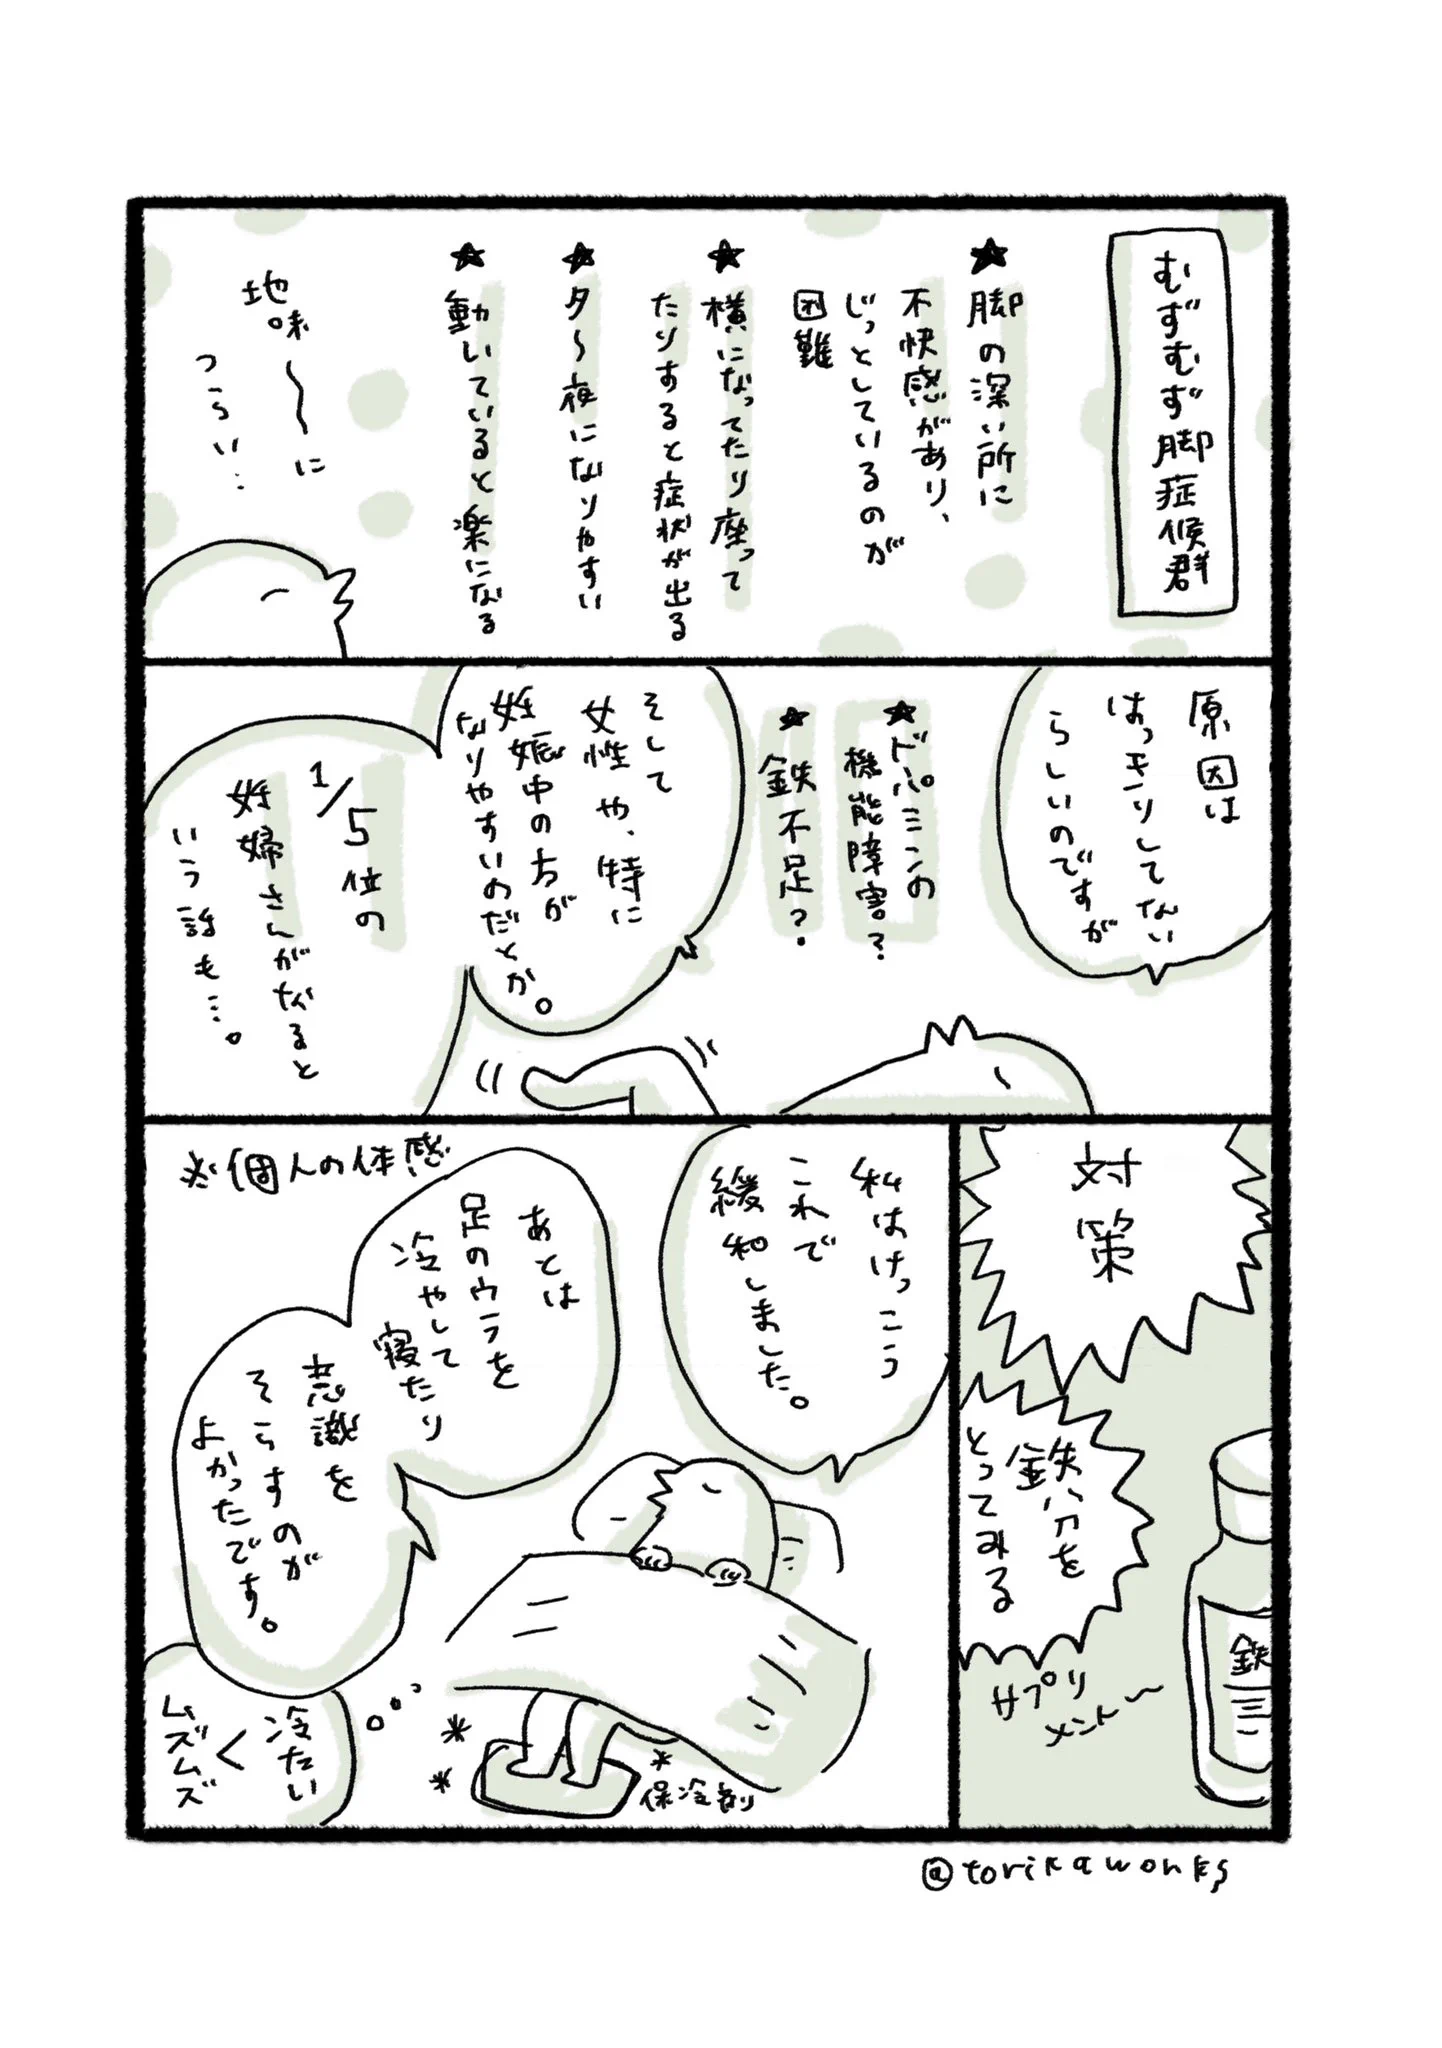 むずむず脚症候群
★脚の深い所に
不快感があり、
じっとしているのが
困難
★横になってたり座って
たりすると症状が出る
★夕〜夜になりやすい
★動いていると楽になる
地味〜に
つらい…
原因は
はっキリしてない
らしいのですが
★ドパミンの
機能障害?
★鉄不足?
そして
女性や、特に
妊娠中の方が
なりやすいのだとか。
1/5位の
妊婦さんがなると
いう話も…。
対策
鉄分を
とってみる
サプリ
メント〜
鉄
私はけっこう
これで
緩和しました。
※個人の体感
あとは
足のウラを
冷やして
寝たり
意識を
そらすのが
よかったです。
保冷剤
冷たい
<
ムズムズ
@torikaworks